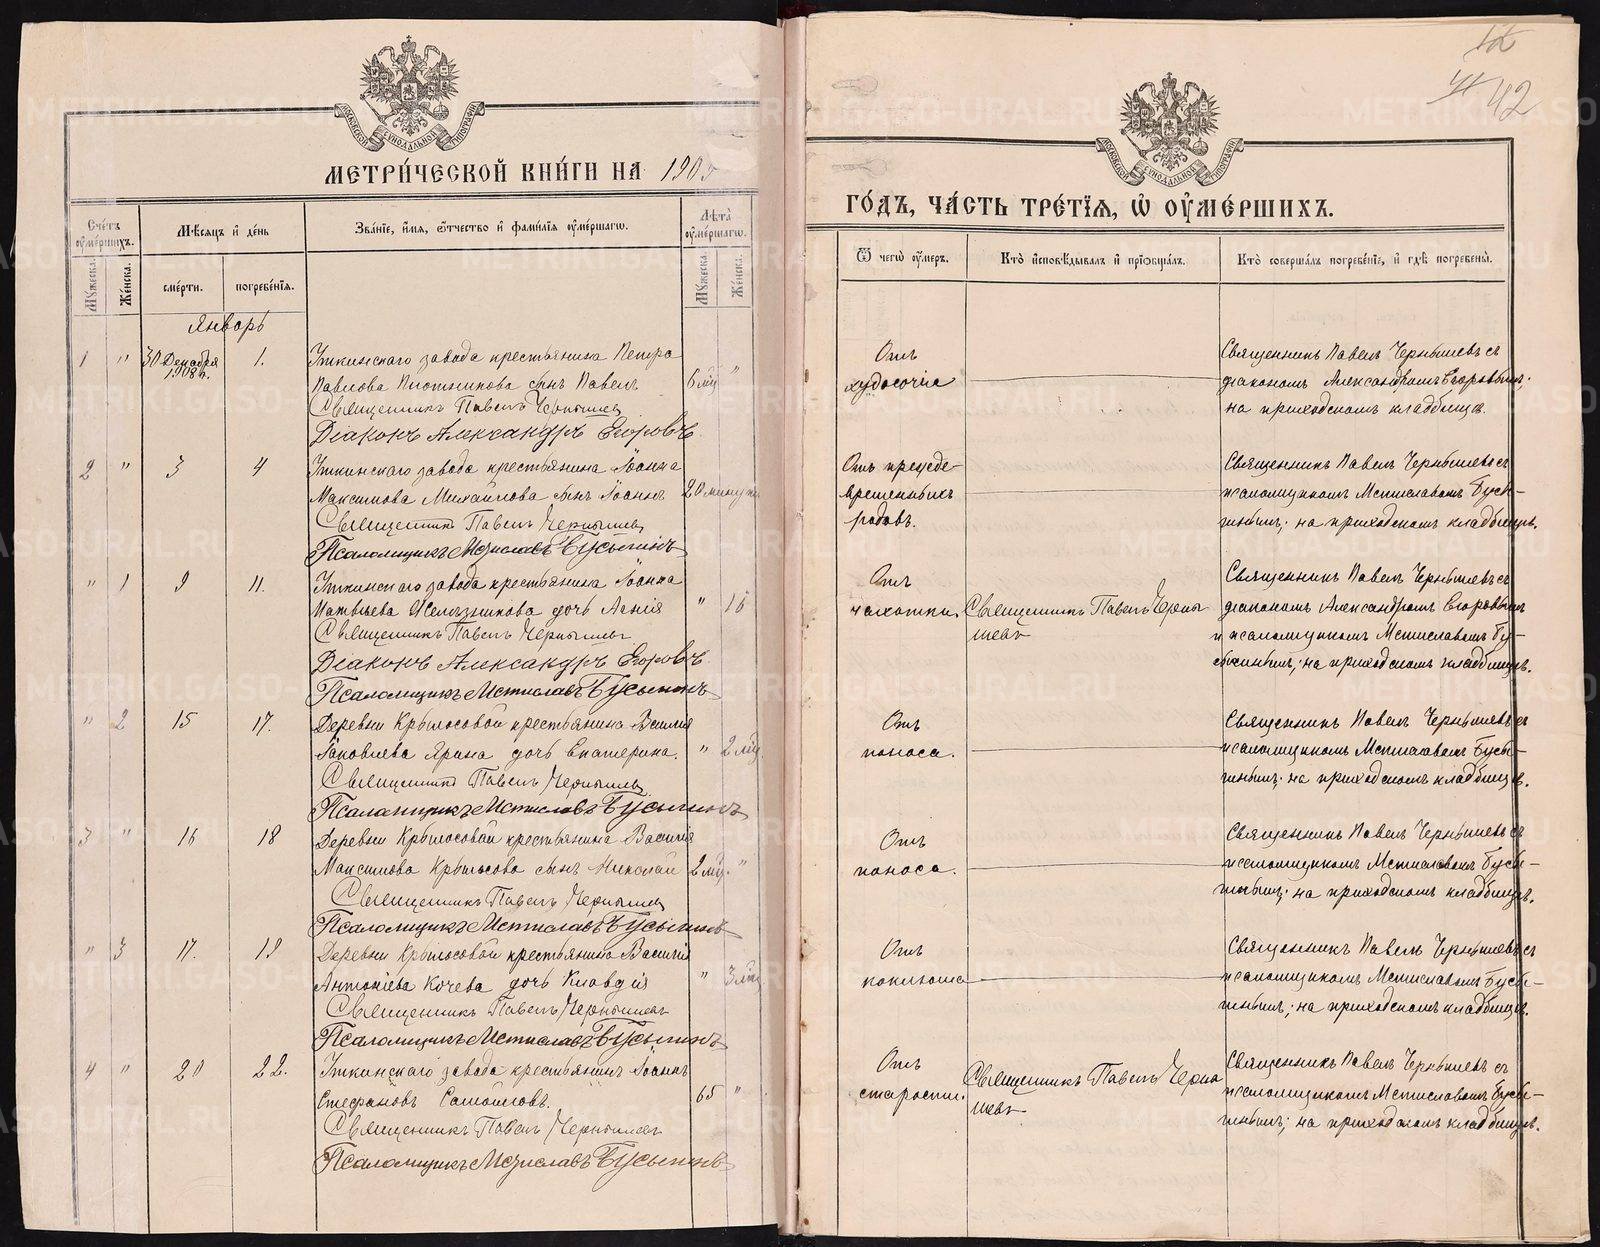 МЕТРИ́ЧЕСКОЙ КНИ́ГИ НА 190
Сче́тъ ᲂу҆ме́ршихъ.
Мѣ́сяцъ и҆ де́нь
Зва́нїе, и҆́мя, ѻ҆́тчество и҆ фами́лїя ᲂу҆ме́ршагѡ.
Лѣ́та ᲂу҆ме́ршагѡ.
Му́жеска.
Же́нска.
сме́рти.
погребе́нїя.
Му́жеска.
Же́нска.
Январь
1 " 30 Декабря 1. Уткинскаго завода крестьянина Петра
1908 г.
Павлова Плотникова сынъ Павелъ 6 мц "
Священникъ Павелъ Чернышевъ
Діаконъ Александръ Егоровъ
2 " 3 4 Уткинскаго завода крестьянина Іоанна
Максимова Михайлова сынъ Іоаннъ 20 минутъ
Священникъ Павелъ Чернышевъ
Псаломщикъ Мстиславъ Бусыгинъ
" 1 9 11. Уткинскаго завода крестьянина Іоанна
Матвѣева Желѣзникова дочь Агнія "
Священникъ Павелъ Чернышевъ
Діаконъ Александръ Егоровъ
Псаломщикъ Мстиславъ Бусыгинъ
" 2 15 17. Деревни Крылосовой крестьянина Василія
Іаковлева Ярина дочь Екатерина. " 2 мц.
Священникъ Павелъ Чернышевъ
Псаломщикъ Мстиславъ Бусыгинъ
3 " 16 18 Деревни Крылосовой крестьянина Василія
Максимова Крылосова сынъ Николай 2 мц. "
Священникъ Павелъ Чернышевъ
Псаломщикъ Мстиславъ Бусыгинъ
" 3 17. 19 Деревни Крылосовой крестьянина Василія
Антоніева Кочева дочь Клавдія " 3 мц
Священникъ Павелъ Чернышевъ
Псаломщикъ Мстиславъ Бусыгинъ
4 " 20 22. Уткинскаго завода крестьянинъ Іоаннъ
Стефановъ Самойловъ. 65 "
Священникъ Павелъ Чернышевъ
Псаломщикъ Мстиславъ Бусыгинъ
42
ГО́ДЪ, ЧА́СТЬ ТРЕ́ТЇЯ, Ѡ҆ ОУ҆МЕ́РШИХЪ.
Ѿ чегѡ̀ ᲂу҆́меръ.
Кто̀ и҆сповѣ́дывалъ и҆ прїѻбща́лъ.
Кто̀ соверша́лъ погребе́нїе, и҆ гдѣ̀ погребены̀.
Отъ Священникъ Павелъ Чернышевъ съ
худосочія діакономъ Александромъ Егоровымъ;
на приходскомъ кладбищѣ.
Отъ преуде- Священникъ Павелъ Чернышевъ съ
временныхъ псаломщикомъ Мстиславомъ Бусы-
родовъ. гинымъ; на приходскомъ кладбищѣ.
Отъ Священникъ Павелъ Чернышевъ съ
чахотки. Священникъ Павелъ Черны- діакономъ Александромъ Егоровымъ
шевъ и псаломщикомъ Мстиславомъ Бу-
сыгинымъ; на приходскомъ кладбищѣ.
Отъ Священникъ Павелъ Чернышевъ съ
поноса. псаломщикомъ Мстиславомъ Бусы-
гинымъ; на приходскомъ кладбищѣ.
Отъ Священникъ Павелъ Чернышевъ съ
поноса. псаломщикомъ Мстиславомъ Бусы-
гинымъ; на приходскомъ кладбищѣ.
Отъ Священникъ Павелъ Чернышевъ съ
коклюша псаломщикомъ Мстиславомъ Бусы-
гинымъ; на приходскомъ кладбищѣ.
Отъ Священникъ Павелъ Чернышевъ съ
старости. Священникъ Павелъ Черны псаломщикомъ Мстиславомъ Бусы-
шевъ гинымъ; на приходскомъ кладбищѣ.
METRIKI.GASO-URAL.RU